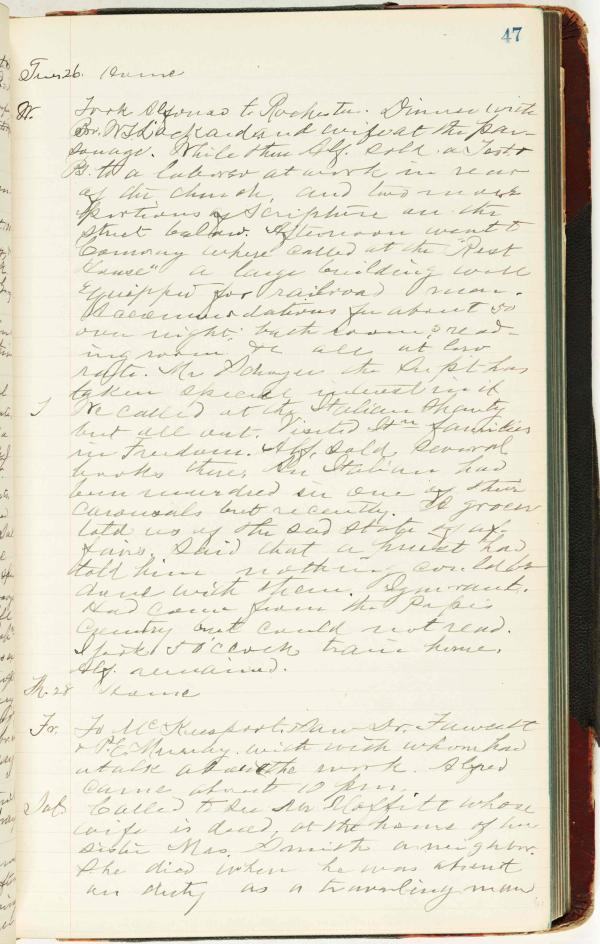 47
Tues 26. Home
W. Took Alfonso to Rochester. Dinner with
Bro. W. F. Lackard and wife at the par-
sonage. While there Alf. sold a Test.
to a laborer at work in rear
of the church, and two more
portions of Scripture on the
street below. Afternoon went to
Conway where called at the "Rest
House" a large building well
equipped for railroad men.
Accommodations for about 50
over night; bath room, read-
ing room, &c all at low
rate. Mr the Supt has
taken special interest in it
We called at the Italian Shanty
but all out. Visited Itn families
in Freedom. Alf. sold several
books there. An Italian had
been murdred in one of their
carousals but recently. A grocer
told us of the sad state of af-
fairs. Said that a priest had
told him nothing could be
done with them. Ignorant.
Had come from the Pope's
Country but could not read.
I took 5 O'clock train home.
Alf. remained.
Th. 28 Home
Fr. To McKeesport. Saw Dr. Fawcett
& with with whom had
a talk about the work. Alfred
came about 10 p.m.
Sat. Called to see Mr Moffitt whose
wife is dead, at the home of her
sister Mrs. Smith a neighbor.
She died when he was absent
on duty as a traveling man